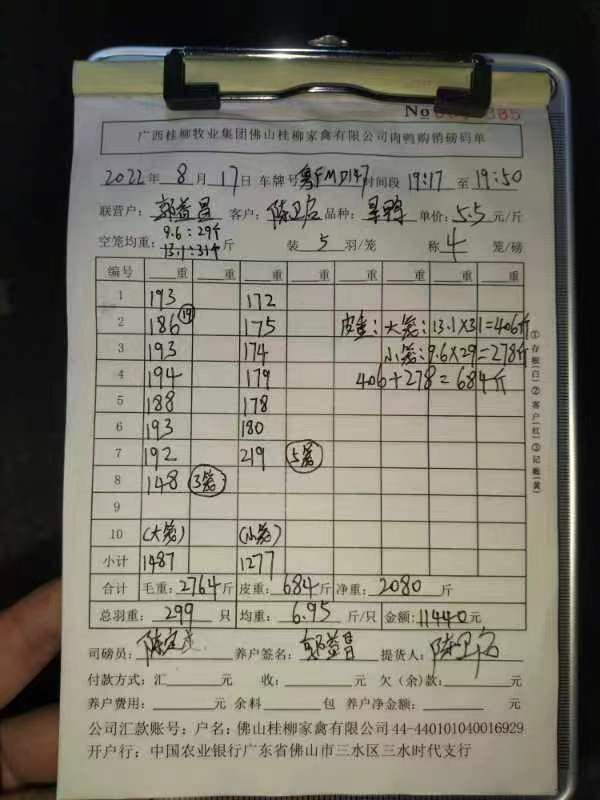 No 385
广西桂柳牧业集团佛山桂柳家禽有限公司肉鸭购销磅码单
2022年 8 月 17 日 车牌号 粤FMD147 时间段 19:17 至 19:50
联营户: 郭益昌 客户: 陈卫启 品种: 旱鸭 单价: 5.5 元/斤
9.6:29个
空笼均重: 13.1:31个 斤 装 5 羽/笼 称 4 笼/磅
编号 重 重 重 重 重 重 重 重
1 193 172
2 186 ⑲ 175 皮重:大笼:13.1×31=406斤
3 193 174 小笼:9.6×29=278斤
4 194 179 406+278=684斤
5 188 178
6 193 180
7 192 219 5笼
8 148 3笼
9
10 (大笼) (小笼)
小计 1487 1277
合计 毛重: 2764 斤 皮重: 684 斤 净重: 2080 斤
总羽重: 299 只 均重: 6.95 斤/只 金额: 11440 元
司磅员: 养户签名: 郭益昌 提货人: 陈卫启
付款方式: 汇 元 收: 元 欠(余)款: 元
养户费用: 元 余料 包 养户净金额: 元
公司汇款账号: 户名: 佛山桂柳家禽有限公司 44-440101040016929
开户行: 中国农业银行广东省佛山市三水区三水时代支行
①存根(白)②客户(红)③记账(黄)